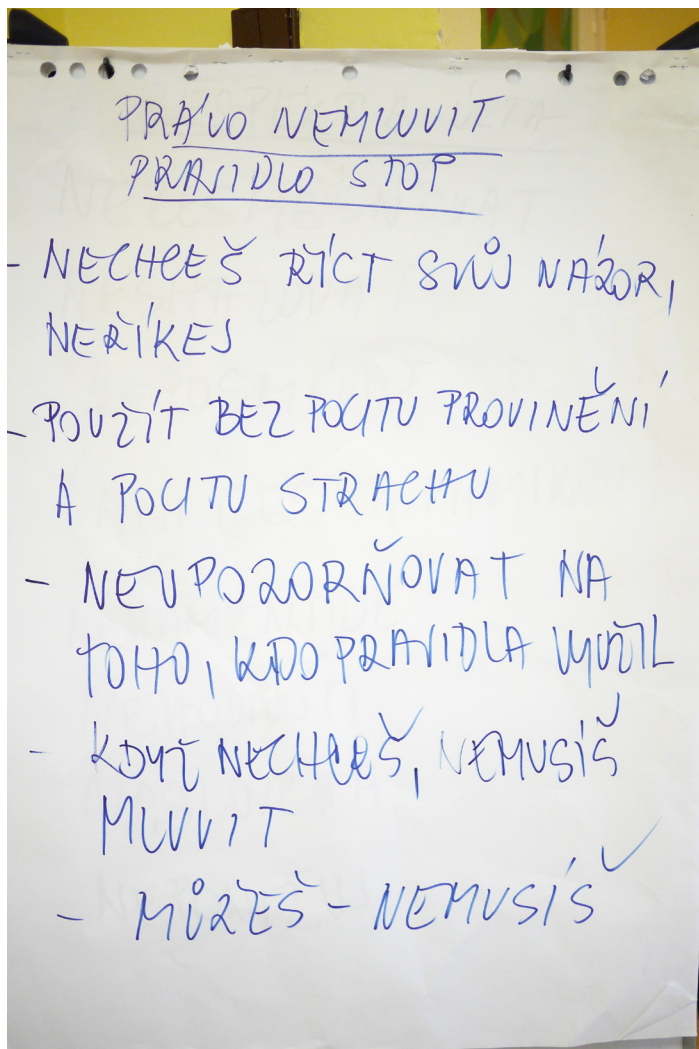 PRÁVO NEMLUVIT
PRAVIDLO STOP
- NECHCEŠ ŘÍCT SVŮJ NÁZOR,
NEŘÍKEJ
- POUŽÍT BEZ POCITU PROVINĚNÍ
A POCITU STRACHU
- NEUPOZORŇOVAT NA
TOHO, KDO PRAVIDLA VYUŽIL
- KDYŽ NECHCEŠ, NEMUSÍŠ
MLUVIT
- MŮŽEŠ - NEMUSÍŠ